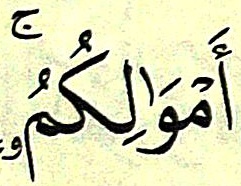 أَمْوَٰلِكُمُ ۚ